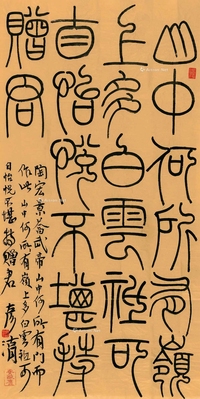 山中何所有嶺
上多白雲祇可
自怡悅不堪持
贈君
陶宏景答武帝山中何所有問而
作此山中何所有嶺上多白雲祇可
自怡悅不堪持贈君